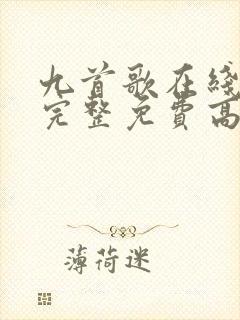 九首歌在綫
完整免費高
薄荷迷